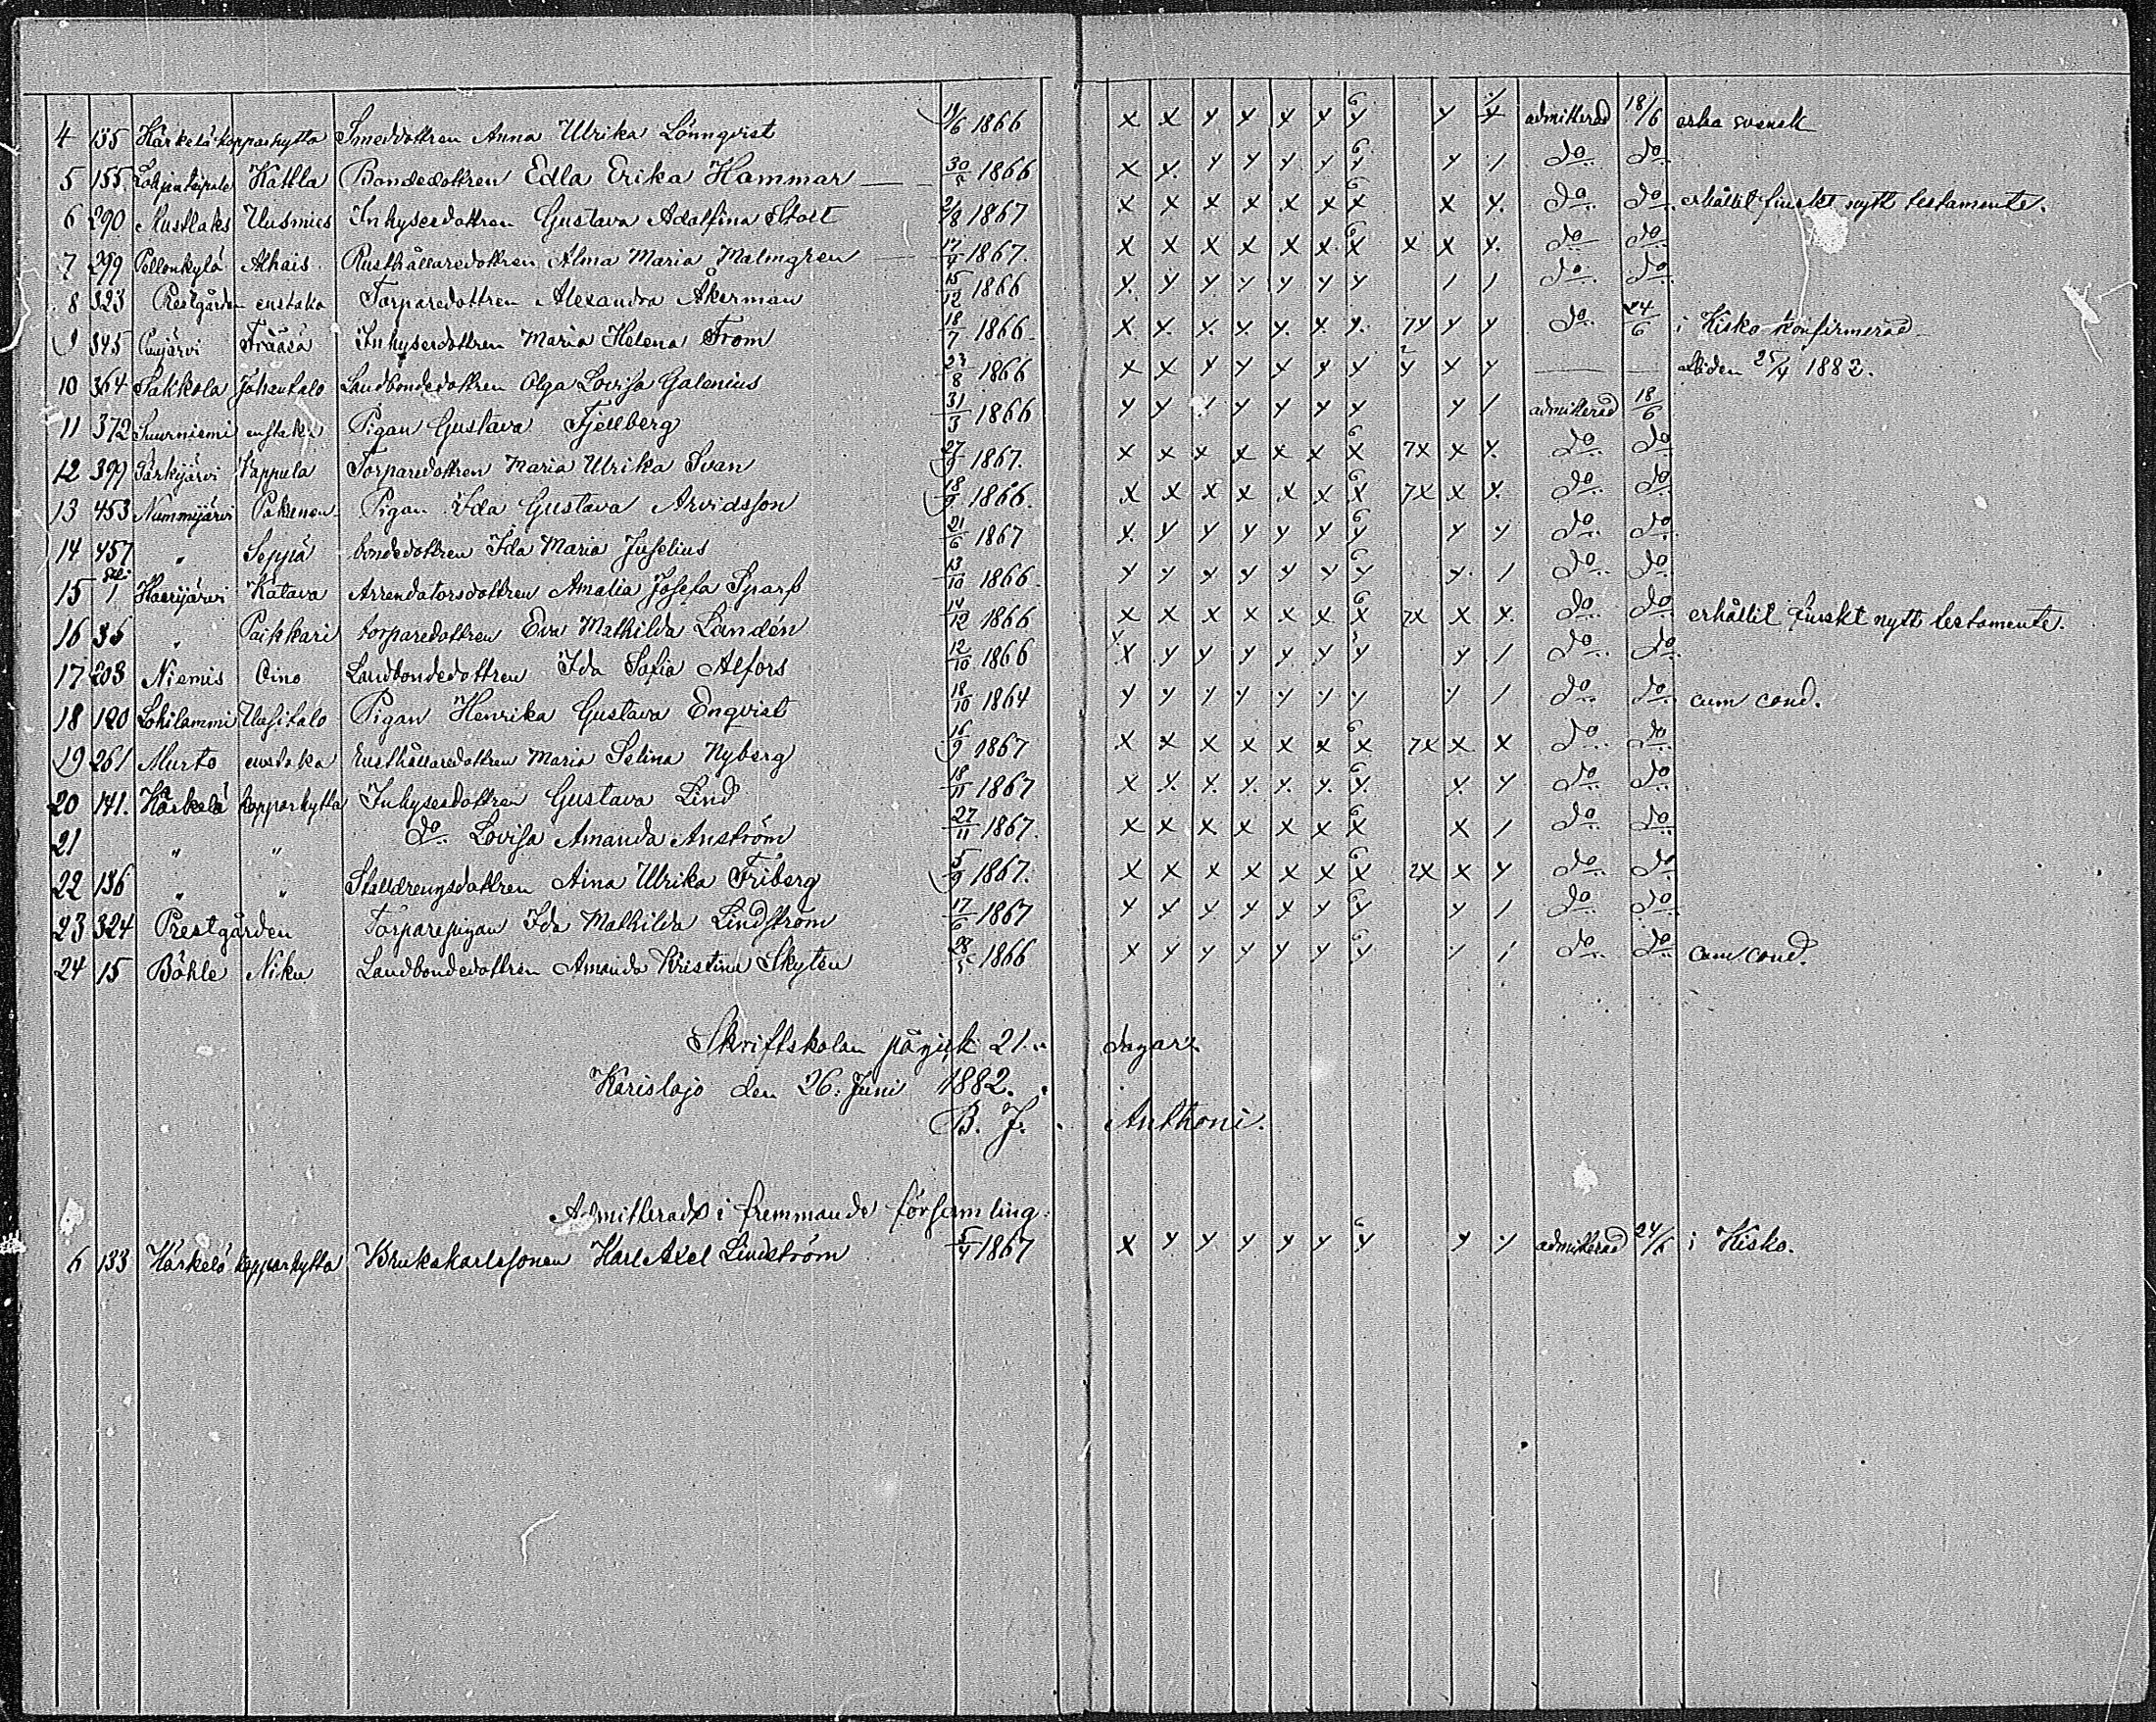 4 135 Härkelä kopparhytta Smeddottren Anna Ulrika Lönnqvist 11/6 1866 x x y y y y 6 y y x admitterad 18/6 enka svensk
5 155 Kattla Bondedottren Edla Erika Hammar 30/5 1866 x y y y y y 6 y y / do do
6 290 Mustlaks Uusmies Inhysesdottren Gustava Adolfina Stolt 2/8 1867 x x x x x x 6 x x y do do erhållit finskt nytt testamente.
7 299 Pellonkylä Alhais Rusthållaredottren Alma Maria Malmgren 17/9 1867. x x x x x x 6 x x x y do do
8 323 Prestgården enstaka Torparedottren Alexandra Åkerman 15/12 1866 y y y y y y y / / do do
9 345 Träsä Inhysesdottren Maria Helena From 18/7 1866 x y y y y y y 7y y y do 24/6 i Kisko konfirmerad
10 364 Sakkola Juhantalo Landbondedottren Olga Lovisa Galenius 23/8 1866 x x y y y y y 2 y y y — — Aliden 25/4 1882.
11 372 Suurniemi enstaka Pigan Gustava Fjellberg 31/3 1866 y y y y y y y y / admitterad 18/6
12 399 Särkijärvi Kappula Torparedottren Maria Ulrika Svan 27/9 1867. x x x x x x 6 x 7x x y do do
13 453 Nummijärvi Paksuen Pigan Ida Gustava Arvidsson 18/9 1866. x x x x x x 6 x 7x x y do do
14 457 " Seppä bondedottren Ida Maria Juselius 21/6 1867 x y y y y y 6 y y y do do
15 1 Haarijärvi Katava Arrendatorsdottren Amalia Josefa Sparf 13/10 1866 y y x y y y 6 y y / do do
16 35 " Paikkari torparedottren Eva Mathilda Landén 14/12 1866 x x x x x x 6 x 7x x x do do erhållit finskt nytt testamente.
17 203 Niemis Oino Landbondedottren Ida Sofia Alfors 12/10 1866 x y y y y y y y / do do
18 120 Lohilammi Uusitalo Pigan Henrika Gustava Enqvist 18/10 1864 y y y y y y y y / do do cum cond.
19 261 Murto enstaka Rusthållaredottren Maria Selina Nyberg 16/9 1867 x x x x x x 6 x 7x x x do do
20 141. Härkelä kopparhytta Inhysesdottren Gustava Lind 18/11 1867 x y y y y y 6 y y y do do
21 " " do Lovisa Amanda Anström 27/11 1867. x x x x x x 6 x x / do do
22 136 " " Stalldrengsdottren Aina Ulrika Friberg 5/9 1867. x x x x x x 6 x 2x x y do do
23 324 Prestgården Torparepigan Ida Mathilda Lindström 17/6 1867 y y y y y y 6 y y / do do
24 15 Böhle Niku Landbondedottren Amanda Kristina Skytén 28/5 1866 y y y y y y 6 y / / do do cum cond.
Skriftskolan pågick 21 dagar.
Karislojo den 26. Juni 1882.
B. J. Anthoni.
Admitterade i fremmande församling.
6 133 Härkelä kopparhytta Brukskarlssonen Karl Axel Lindström 5/4 1867 x y y y y y 6 y y y admitterad 24/6 i Kisko.